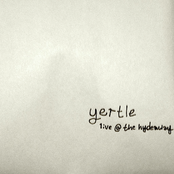 yertle
live @ the hydeaway